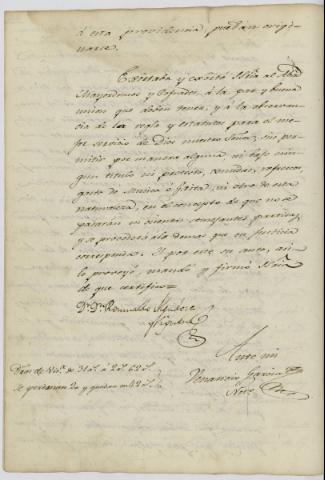 á esta providencia, puedan origi-
narse.
Exortaba y exortó SSria al Abad
Mayordomos y Cofrades, á la paz y buena
union que deben tener, y á la observan-
cia de la regla y estatutos para el me-
jor servicio de Dios nuestro Señor, sin per-
mitir por manera alguna ni bajo nin-
gun titulo ni pretesto, comidas, refrescos,
gasto de Musica ó gaita, ni otro de esta
naturaleza, en el concepto de que no se
pasarán en cuenta semejantes partidas,
y se procederá á lo demas que en justicia
corresponda. Y por este su auto, asi
lo proveyó, mandó y firmó SSria
de que certifico=
Dr. Dn.
Ante mi
Venancio Garcia
Dros de de 31 á 2 62
Se perdonan 20 y quedan en 42